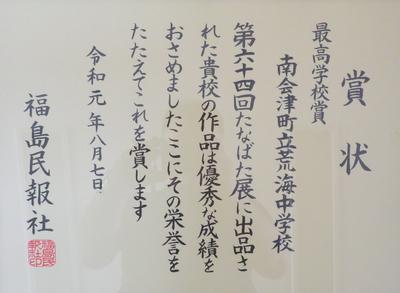 賞状
最高学校賞
南会津町立荒海中学校
第六十四回たなばた展に出品さ
れた貴校の作品は優秀な成績を
おさめましたここにその栄誉を
たたえてこれを賞します
令和元年八月七日
福島民報社